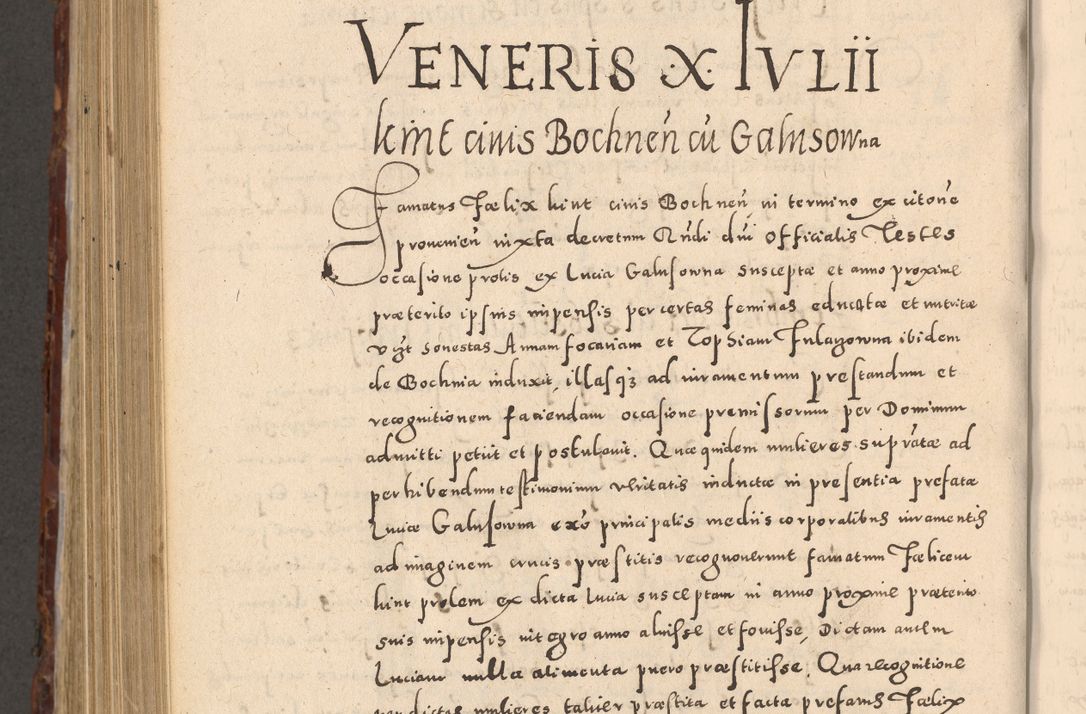 VENERIS X IVLII
kint civis Bochneñ cū Galusowna
Famatus Fœlix kint civis Bochneñ, in termino ex citoñe
provenieñ iuxta decretum Rñdi dñi officialis Testes
occasione prolis ex Lucia Galusowna susceptæ et anno proxime
præterito ipsius impensis per certas feminas eductæ et nutritæ
vigt honestas Annam focariam et Zophiam
ibidem
de Bochnia induxit, illasq3 ad iuramentum prestandum et
recognitionem faciendam occasione premissorum per Dominum
admitti petiit et postulavit. Quæquidem mulieres suprātæ ad
perhibendum testimonium veritatis inductæ in presentia prefatæ
Luciæ Galusowna exō principalis mediis corporalibus iuramentis
ad imaginem crucis præstitis recognoverunt famatum Fælicem
kint prolem ex dicta Lucia susceptam in anno proxime præterito
suis impensis integro anno aluisse et fovisse, Dictam autem
Luciam nulla alimenta puero præstitisse. Qua recognitione
per dictas mulieres taliter præstita et facta prefatus Fælix